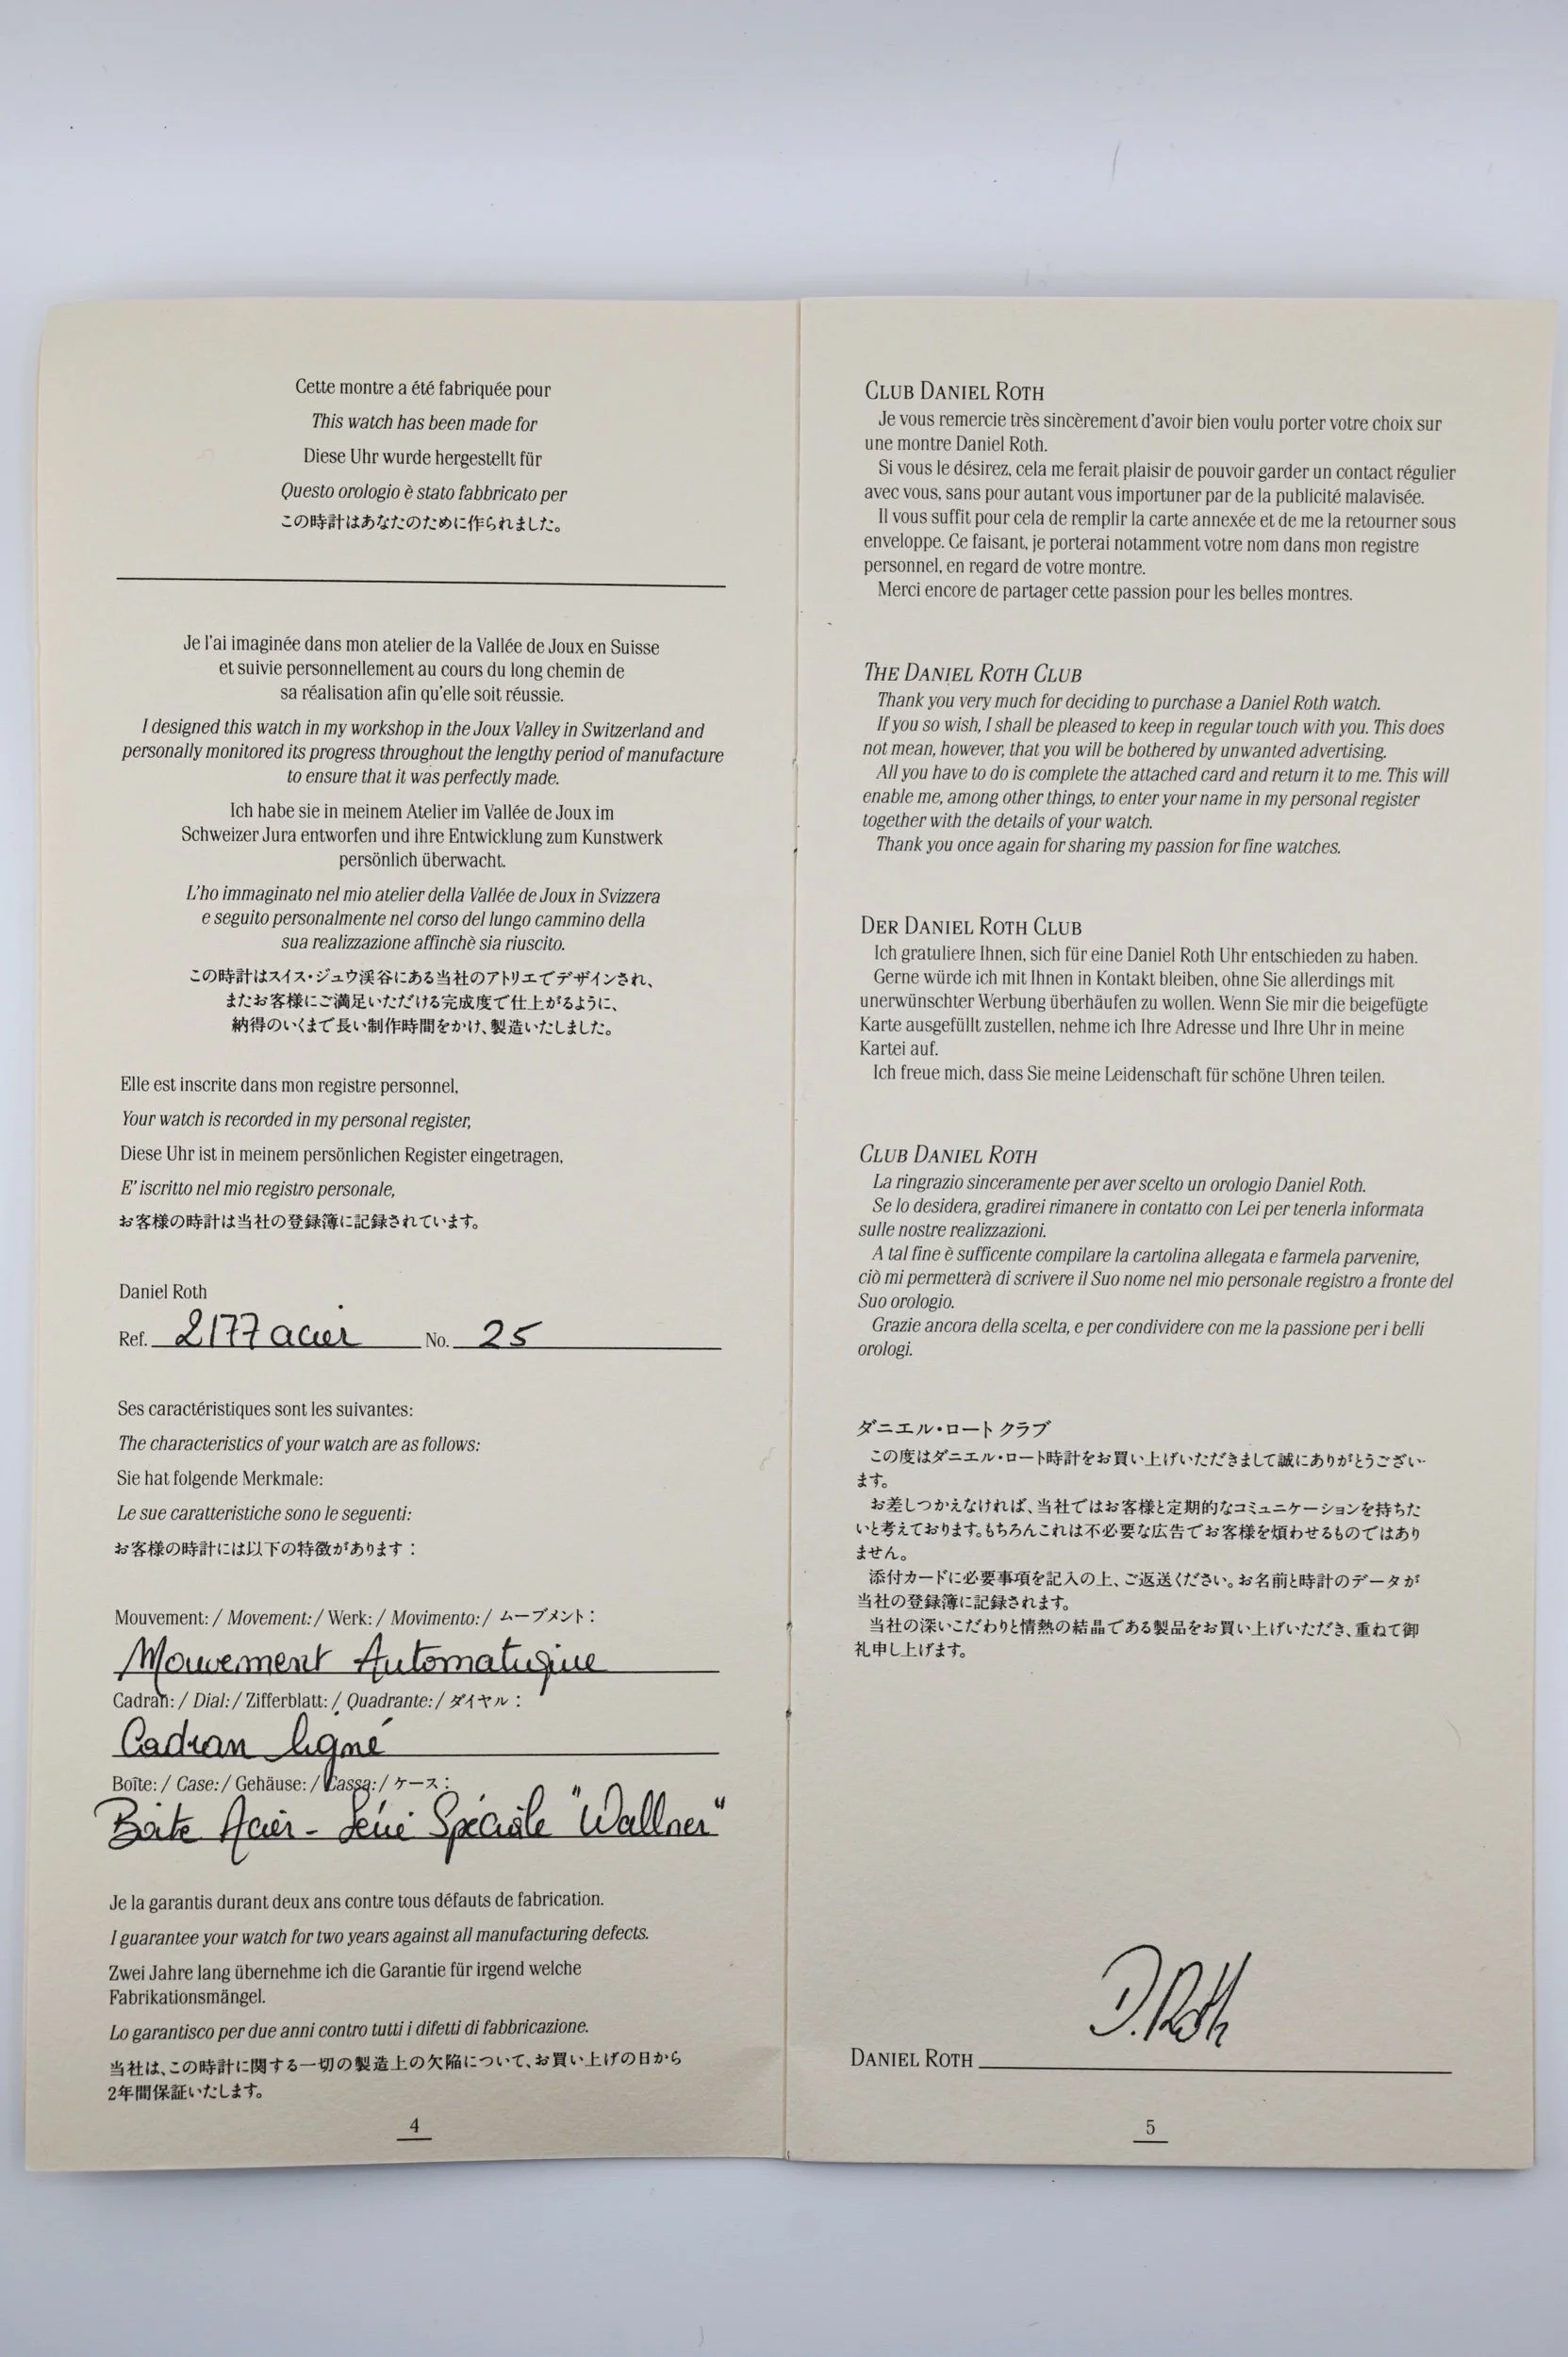 Cette montre a été fabriquée pour
This watch has been made for
Diese Uhr wurde hergestellt für
Questo orologio è stato fabbricato per
この時計はあなたのために作られました。
Je l'ai imaginée dans mon atelier de la Vallée de Joux en Suisse
et suivie personnellement au cours du long chemin de
sa réalisation afin qu'elle soit réussie.
I designed this watch in my workshop in the Joux Valley in Switzerland and
personally monitored its progress throughout the lengthy period of manufacture
to ensure that it was perfectly made.
Ich habe sie in meinem Atelier im Vallée de Joux im
Schweizer Jura entworfen und ihre Entwicklung zum Kunstwerk
persönlich überwacht.
L'ho immaginato nel mio atelier della Vallée de Joux in Svizzera
e seguito personalmente nel corso del lungo cammino della
sua realizzazione affinchè sia riuscito.
この時計はスイス・ジュウ渓谷にある当社のアトリエでデザインされ、
またお客様にご満足いただける完成度で仕上がるように、
納得のいくまで長い制作時間をかけ、製造いたしました。
Elle est inscrite dans mon registre personnel,
Your watch is recorded in my personal register,
Diese Uhr ist in meinem persönlichen Register eingetragen,
E' iscritto nel mio registro personale,
お客様の時計は当社の登録簿に記録されています。
Daniel Roth
Ref. 2177 acier No. 25
Ses caractéristiques sont les suivantes:
The characteristics of your watch are as follows:
Sie hat folgende Merkmale:
Le sue caratteristiche sono le seguenti:
お客様の時計には以下の特徴があります：
Mouvement: / Movement: / Werk: / Movimento: / ムーブメント：
Mouvement Automatique
Cadran: / Dial: / Zifferblatt: / Quadrante: / ダイヤル：
Cadran ligné
Boîte: / Case: / Gehäuse: / Cassa: / ケース：
Boite Acier - Série Spéciale "Wallner"
Je la garantis durant deux ans contre tous défauts de fabrication.
I guarantee your watch for two years against all manufacturing defects.
Zwei Jahre lang übernehme ich die Garantie für irgend welche
Fabrikationsmängel.
Lo garantisco per due anni contro tutti i difetti di fabbricazione.
当社は、この時計に関する一切の製造上の欠陥について、お買い上げの日から
2年間保証いたします。
4
CLUB DANIEL ROTH
Je vous remercie très sincèrement d'avoir bien voulu porter votre choix sur
une montre Daniel Roth.
Si vous le désirez, cela me ferait plaisir de pouvoir garder un contact régulier
avec vous, sans pour autant vous importuner par de la publicité malavisée.
Il vous suffit pour cela de remplir la carte annexée et de me la retourner sous
enveloppe. Ce faisant, je porterai notamment votre nom dans mon registre
personnel, en regard de votre montre.
Merci encore de partager cette passion pour les belles montres.
THE DANIEL ROTH CLUB
Thank you very much for deciding to purchase a Daniel Roth watch.
If you so wish, I shall be pleased to keep in regular touch with you. This does
not mean, however, that you will be bothered by unwanted advertising.
All you have to do is complete the attached card and return it to me. This will
enable me, among other things, to enter your name in my personal register
together with the details of your watch.
Thank you once again for sharing my passion for fine watches.
DER DANIEL ROTH CLUB
Ich gratuliere Ihnen, sich für eine Daniel Roth Uhr entschieden zu haben.
Gerne würde ich mit Ihnen in Kontakt bleiben, ohne Sie allerdings mit
unerwünschter Werbung überhäufen zu wollen. Wenn Sie mir die beigefügte
Karte ausgefüllt zustellen, nehme ich Ihre Adresse und Ihre Uhr in meine
Kartei auf.
Ich freue mich, dass Sie meine Leidenschaft für schöne Uhren teilen.
CLUB DANIEL ROTH
La ringrazio sinceramente per aver scelto un orologio Daniel Roth.
Se lo desidera, gradirei rimanere in contatto con Lei per tenerla informata
sulle nostre realizzazioni.
A tal fine è sufficente compilare la cartolina allegata e farmela parvenire,
ciò mi permetterà di scrivere il Suo nome nel mio personale registro a fronte del
Suo orologio.
Grazie ancora della scelta, e per condividere con me la passione per i belli
orologi.
ダニエル・ロート クラブ
この度はダニエル・ロート時計をお買い上げいただきまして誠にありがとうござい
ます。
お差しつかえなければ、当社ではお客様と定期的なコミュニケーションを持ちた
いと考えております。もちろんこれは不必要な広告でお客様を煩わせるものではあり
ません。
添付カードに必要事項を記入の上、ご返送ください。お名前と時計のデータが
当社の登録簿に記録されます。
当社の深いこだわりと情熱の結晶である製品をお買い上げいただき、重ねて御
礼申し上げます。
D. Roth
DANIEL ROTH
5